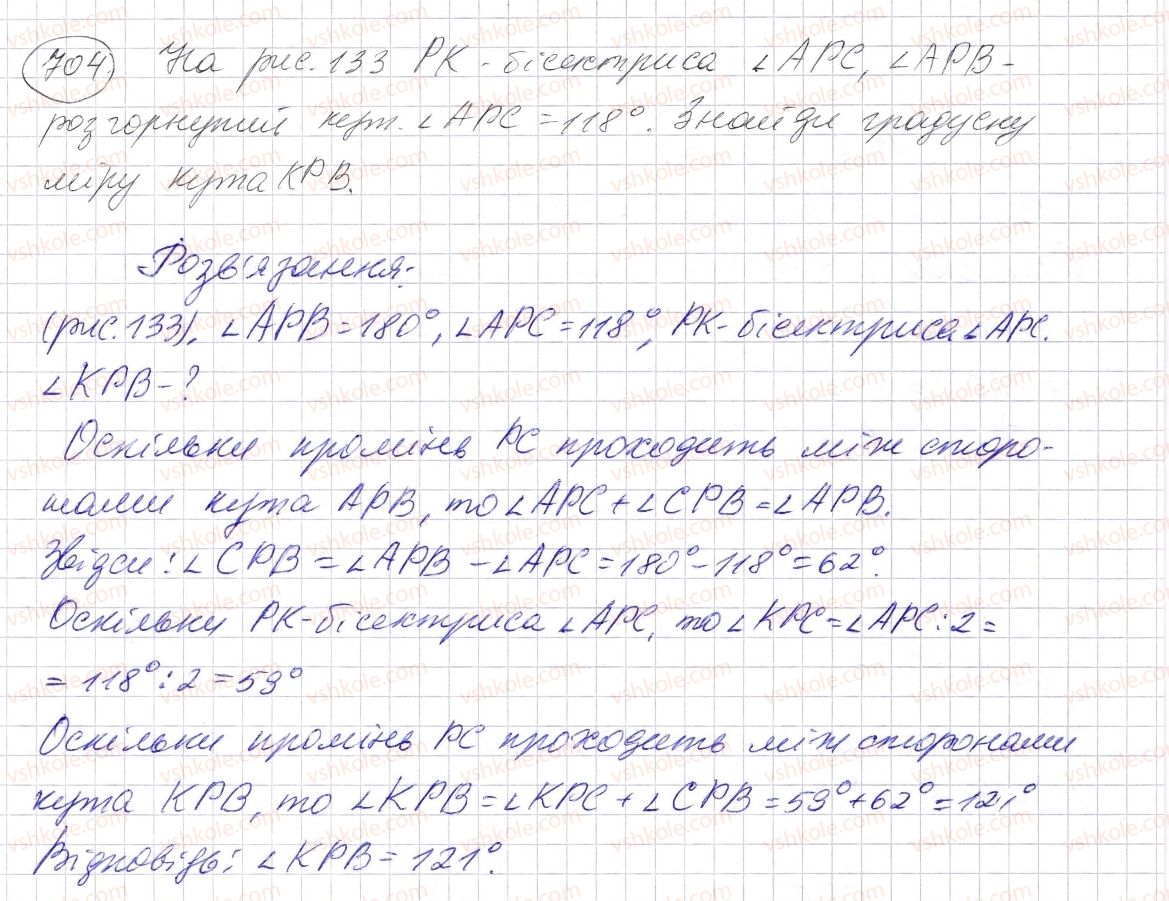 704. На рис. 133 PK - бісектриса ∠APC, ∠APB -
розгорнутий кут. ∠APC = 118°. Знайди градусну
міру кута KPB.
Розв'язання:
(рис. 133). ∠APB = 180°, ∠APC = 118°, PK - бісектриса ∠APC.
∠KPB - ?
Оскільки промінь PC проходить між сторо-
нами кута APB, то ∠APC + ∠CPB = ∠APB.
Звідси: ∠CPB = ∠APB - ∠APC = 180° - 118° = 62°.
Оскільки PK - бісектриса ∠APC, то ∠KPC = ∠APC : 2 =
= 118° : 2 = 59°
Оскільки промінь PC проходить між сторонами
кута KPB, то ∠KPB = ∠KPC + ∠CPB = 59° + 62° = 121°
Відповідь: ∠KPB = 121°.